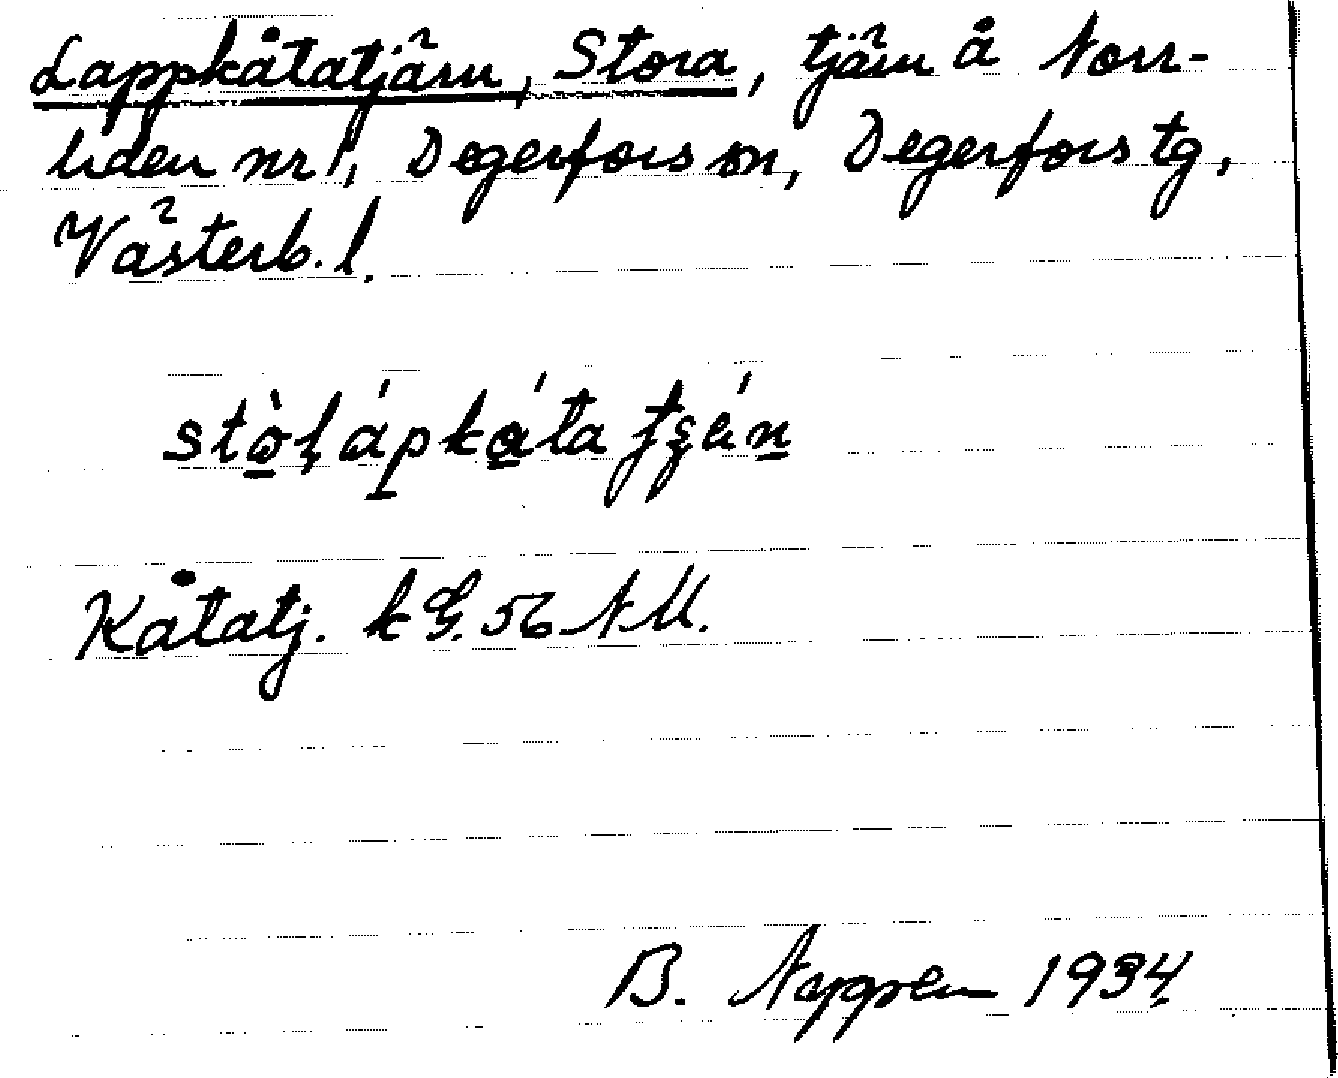 Lappkåtatjärn, Stora, tjärn å Norr-
liden nr 1, Degerfors sn, Degerfors tg,
Västerb. l.
Kåtatj. k G. 56 NU.
B. Nygren 1934